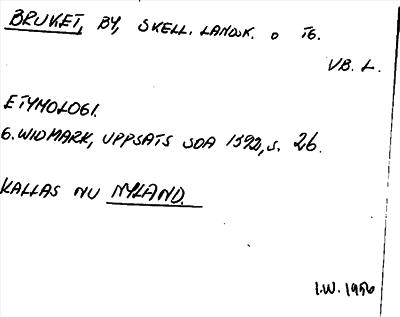 BRUKET, BY, SKELL. LANDSK. O TG.
VB. L.
ETYMOLOGI.
G. WIDMARK, UPPSATS SOA 1592, S. 26.
KALLAS NU NYLAND.
I.W. 1956